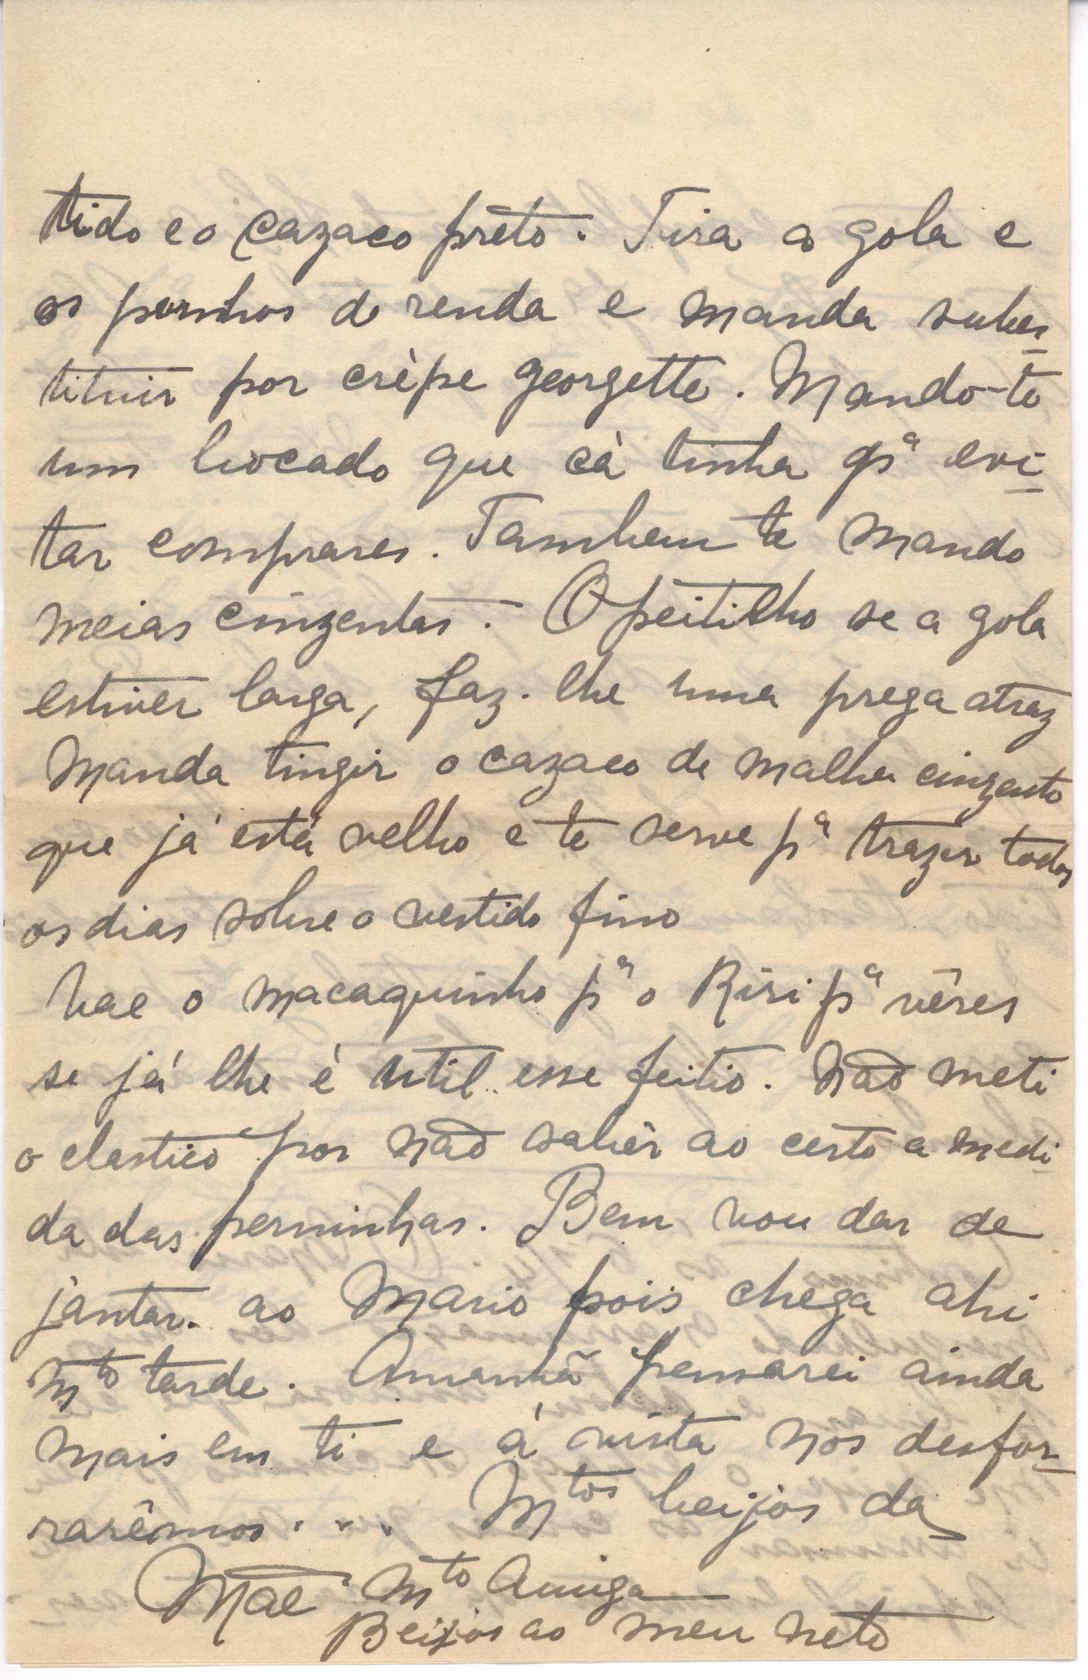 tido e o cazaco prêto. Tira a gola e
os punhos de renda e manda subs-
tituir por crèpe georgette. Mando-te
um bocado que cà tinha pª evi-
tar comprares. Tambem te mando
meias cinzentas. O peitilho se a gola
estiver larga, faz-lhe uma prega atraz
Manda tingir o cazaco de malha cinzento
que já está velho e te serve pª trazer todos
os dias sobre o vestido fino
Vae o macaquinho pª o Riri pª vêres
se já lhe é util esse feitio. Não meti
o elastico por não sabêr ao certo a medi-
da das perninhas. Bem vou dar de
jantar ao Mario pois chega ahi
mto tarde. Amanhã pensarei ainda
mais em ti e á vista nos desfor-
rarêmos.... Mtos beijos da
Mãe mto Amiga
Beijos ao meu neto